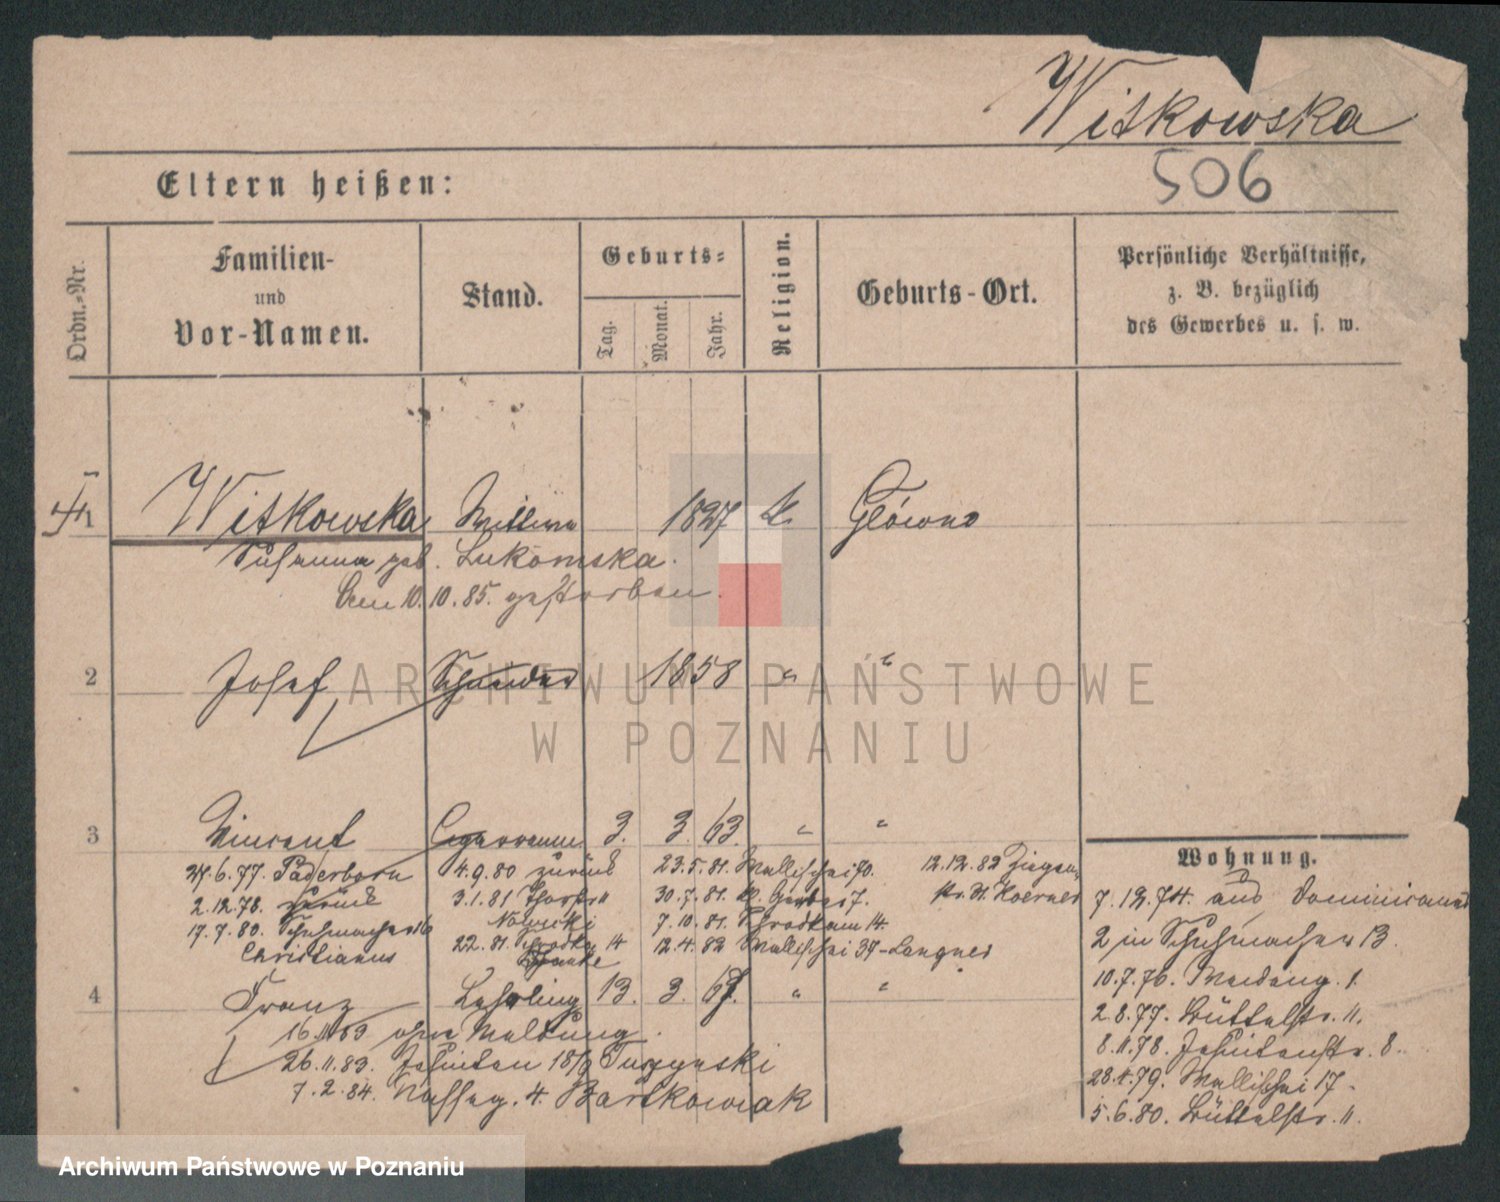 Witkowska
506
Eltern heißen:
Ordn.=Nr.
Familien-
und
Vor-Namen.
Stand.
Geburts=
Tag.
Monat.
Jahr.
Religion.
Geburts-Ort.
Persönliche Verhältnisse,
z. B. bezüglich
des Gewerbes u. s. w.
1 Witkowska Wittwe 1827 k Główno
Susanna geb. Lukomska.
Den 10.10.85. gestorben.
2 Josef Schneider 1858 " "
3 Vincent Cigarrenm 3. 3. 63. " "
24.6.77. Paderborn
2.12.78. zurück
17.7.80. Schuhmacherstr 16
Christianus
4.9.80 zurück
3.1.81
Nowicki
22. 81. Schrodka 14
23.5.81. Wallischei 70.
30.7.81. kl. Gerber 7.
7.10.81. Schrodka am 14.
12.4.82 Wallischei 37-Langner
12.12.82 Ziegen
str. 21 Koerner
4 Franz Lehrling 13. 3. 67. " "
16.11.83 ohne Meldung.
26.11.83. Jesuiten 18/9 Tuszynski
7.2.84. Nasseg. 4. Bartkowiak
Wohnung.
7.12.74. aus Dominicaner
2 in Schuhmacher 13.
10.7.76. Neueleng. 1.
2.8.77. Büttelstr. 11.
8.11.78. Jesuitenstr. 8.
28.4.79. Wallischei 17.
5.6.80. Büttelstr. 11.
ARCHIWUM PAŃSTWOWE
W POZNANIU
Archiwum Państwowe w Poznaniu